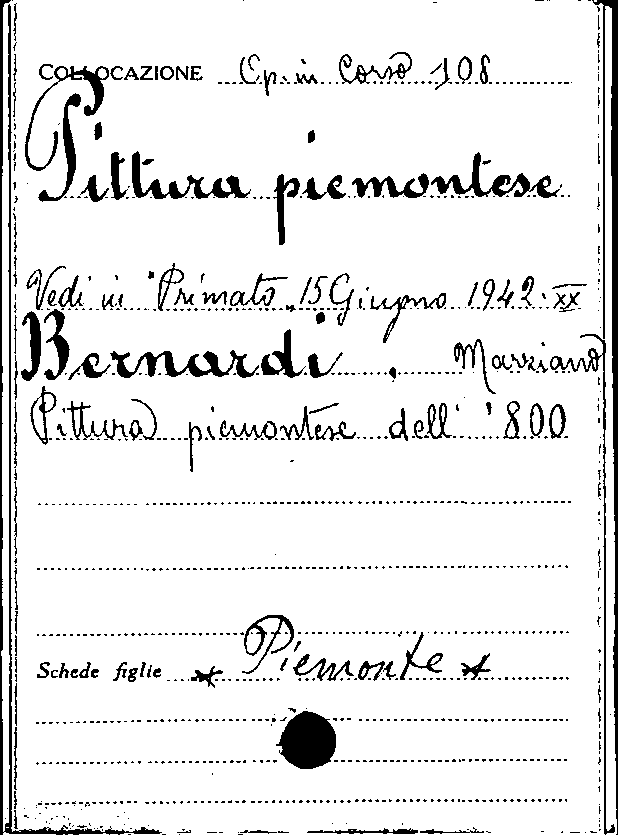 COLLOCAZIONE Cp. in Corso 108
Pittura piemontese
Vedi in "Primato" 15 Giugno 1942·XX
Bernardi, Marziano
Pittura piemontese dell' '800
Schede figlie * Piemonte *